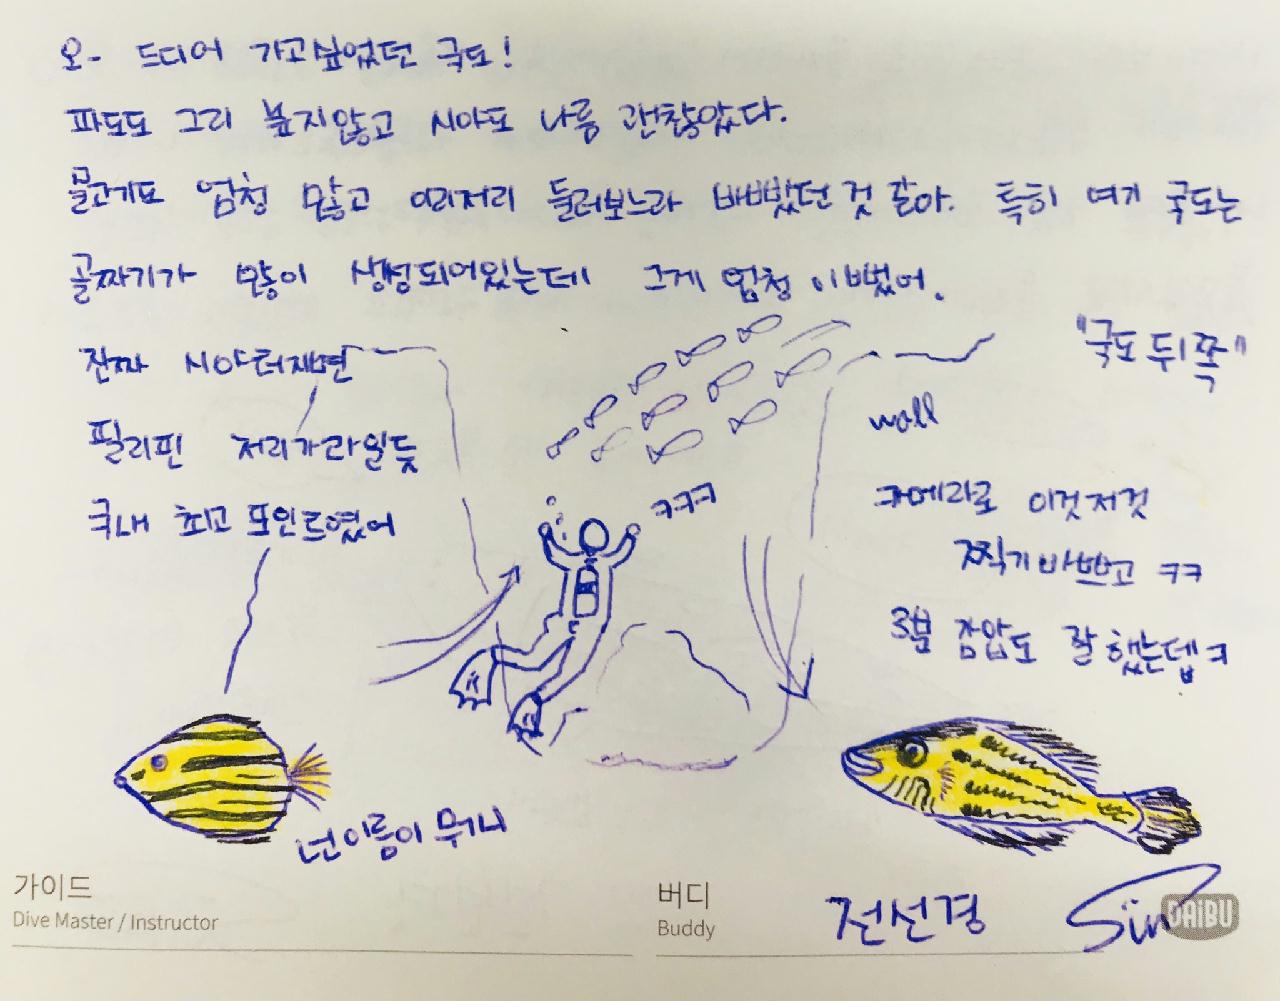 오- 드디어 가고싶었던 국도!
파도도 그리 높지않고 시야도 나름 괜찮았다.
물고기도 엄청 많고 이리저리 둘러보느라 바빴던것 같아. 특히 여기 국도는
골짜기가 많이 생성되어있는데 그게 엄청 이뻤어.
진짜 시야터지면
필리핀 저리가라일듯
국내 최고 포인트였어
ㅋㅋㅋ
"국도 뒤쪽"
wall
카메라로 이것저것
찍기바쁘고 ㅋㅋ
3분 잠압도 잘했는뎁ㅋ
넌이름이 뭐니
가이드
Dive Master / Instructor
버디
Buddy
전선경
Sin
DAiBU